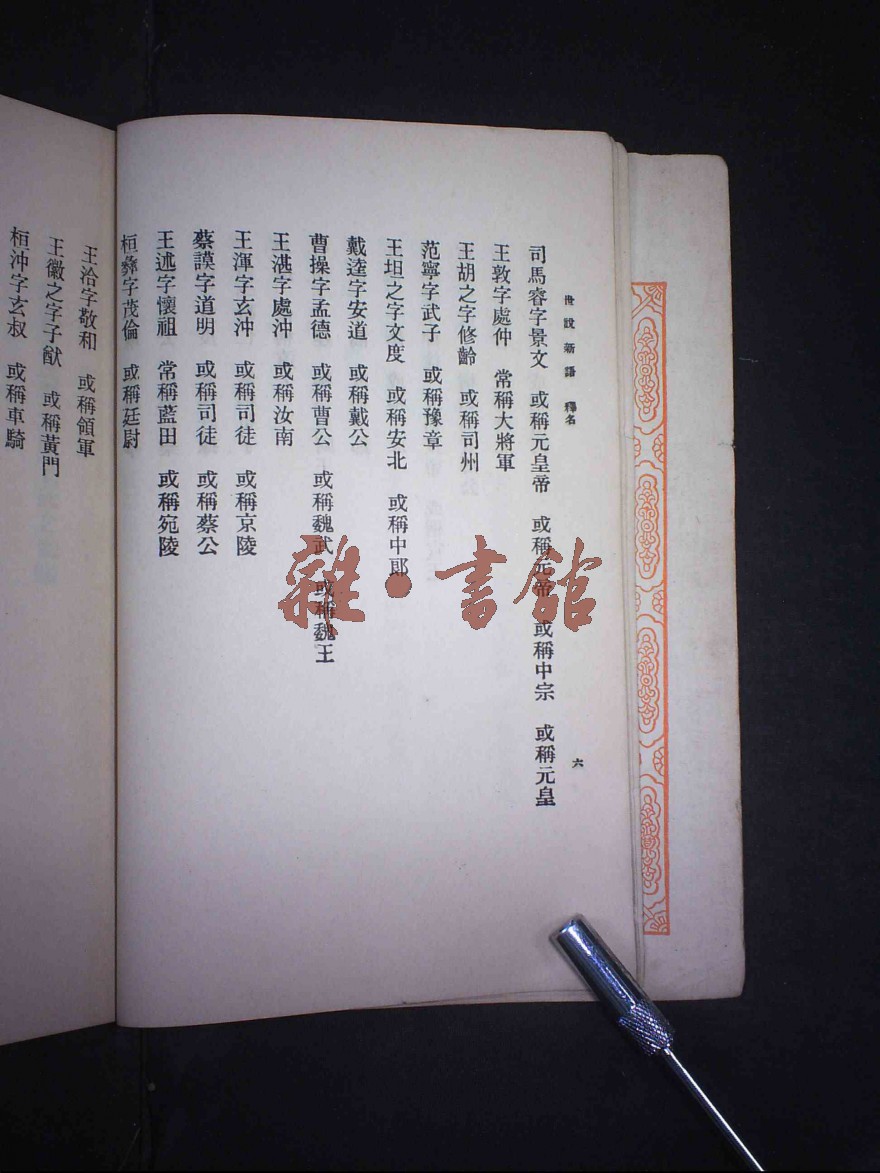 世說新語 釋名
六
司馬睿字景文 或稱元皇帝 或稱元帝 或稱中宗 或稱元皇
王敦字處仲 常稱大將軍
王胡之字修齡 或稱司州
范寧字武子 或稱豫章
王坦之字文度 或稱安北 或稱中郎
戴逵字安道 或稱戴公
曹操字孟德 或稱曹公 或稱魏武 或稱魏王
王湛字處沖 或稱汝南
王渾字玄沖 或稱司徒 或稱京陵
蔡謨字道明 或稱司徒 或稱蔡公
王述字懷祖 常稱藍田 或稱宛陵
桓彝字茂倫 或稱廷尉
王洽字敬和 或稱領軍
王徽之字子猷 或稱黃門
桓沖字玄叔 或稱車騎
雜·書館